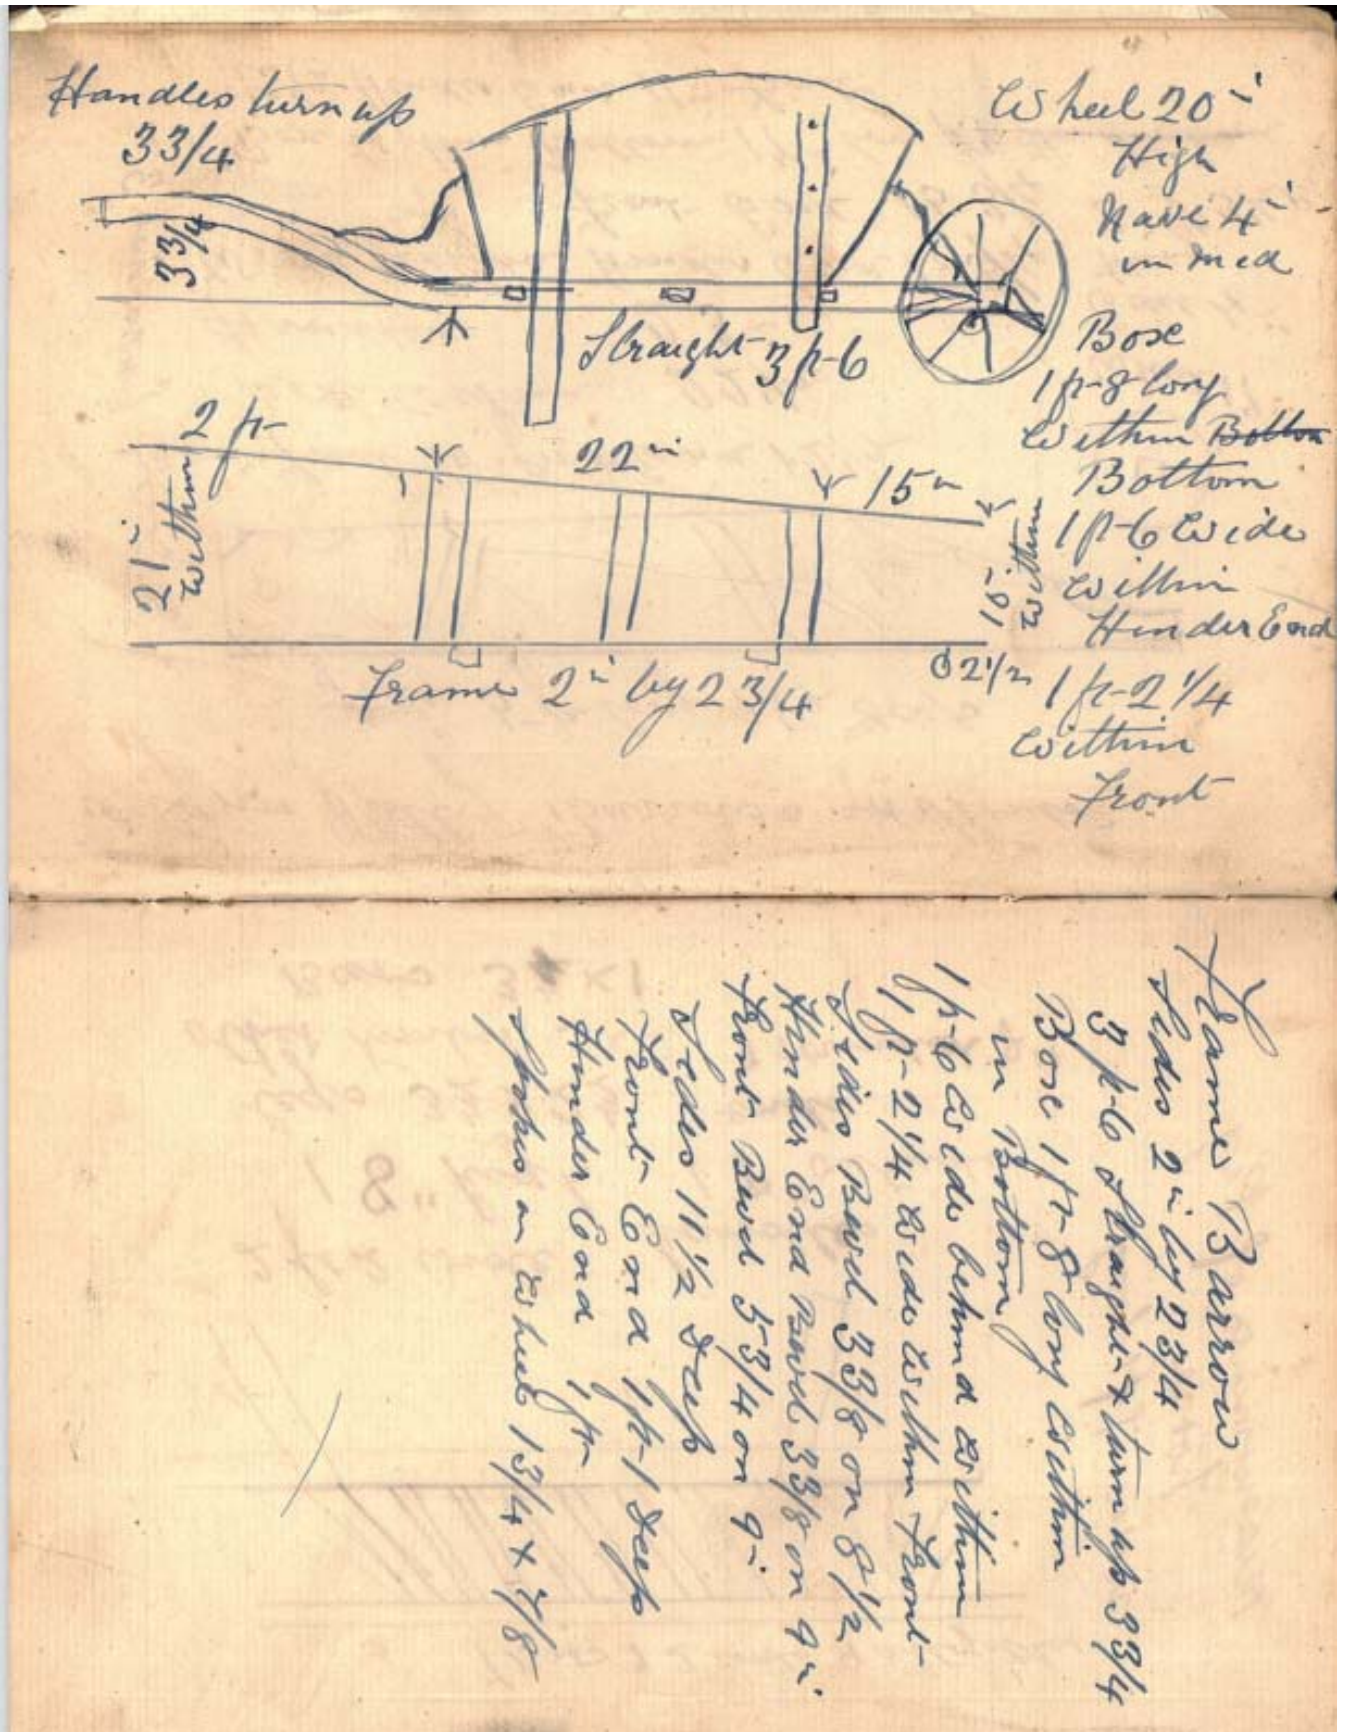 Handles turn up
3 3/4
3 3/4
Straight 3 ft-6
Wheel 20 i
High
Nave 4 i
in Mid
Boxe
1 ft-8 long
Within Bottom
Bottom
1 ft-6 Wide
Within
Hinder End
1 ft-2 1/4
Within
Front
2 ft
22 in
15 in
21 i
Within
18 i
Within
2 1/2
Frame 2 in by 2 3/4
Frame Barrow
Sides 2 in by 2 3/4
3 ft-6 Straight & turn up 3 3/4
Boxe 1 ft-8 long Within
in Bottom
1 ft-6 Wide behind Within
1 ft-2 1/4 Wide Within Front
Sides Bevel 3 3/8 on 8 1/2
Hinder End Bevel 3 3/8 on 9 in
Front Bevel 5 3/4 on 9 i
Sides 11 1/2 Deep
Front End 1 ft-1 Deep
Hinder End 1 ft
Spokes in Wheel 1 3/4 x 7/8